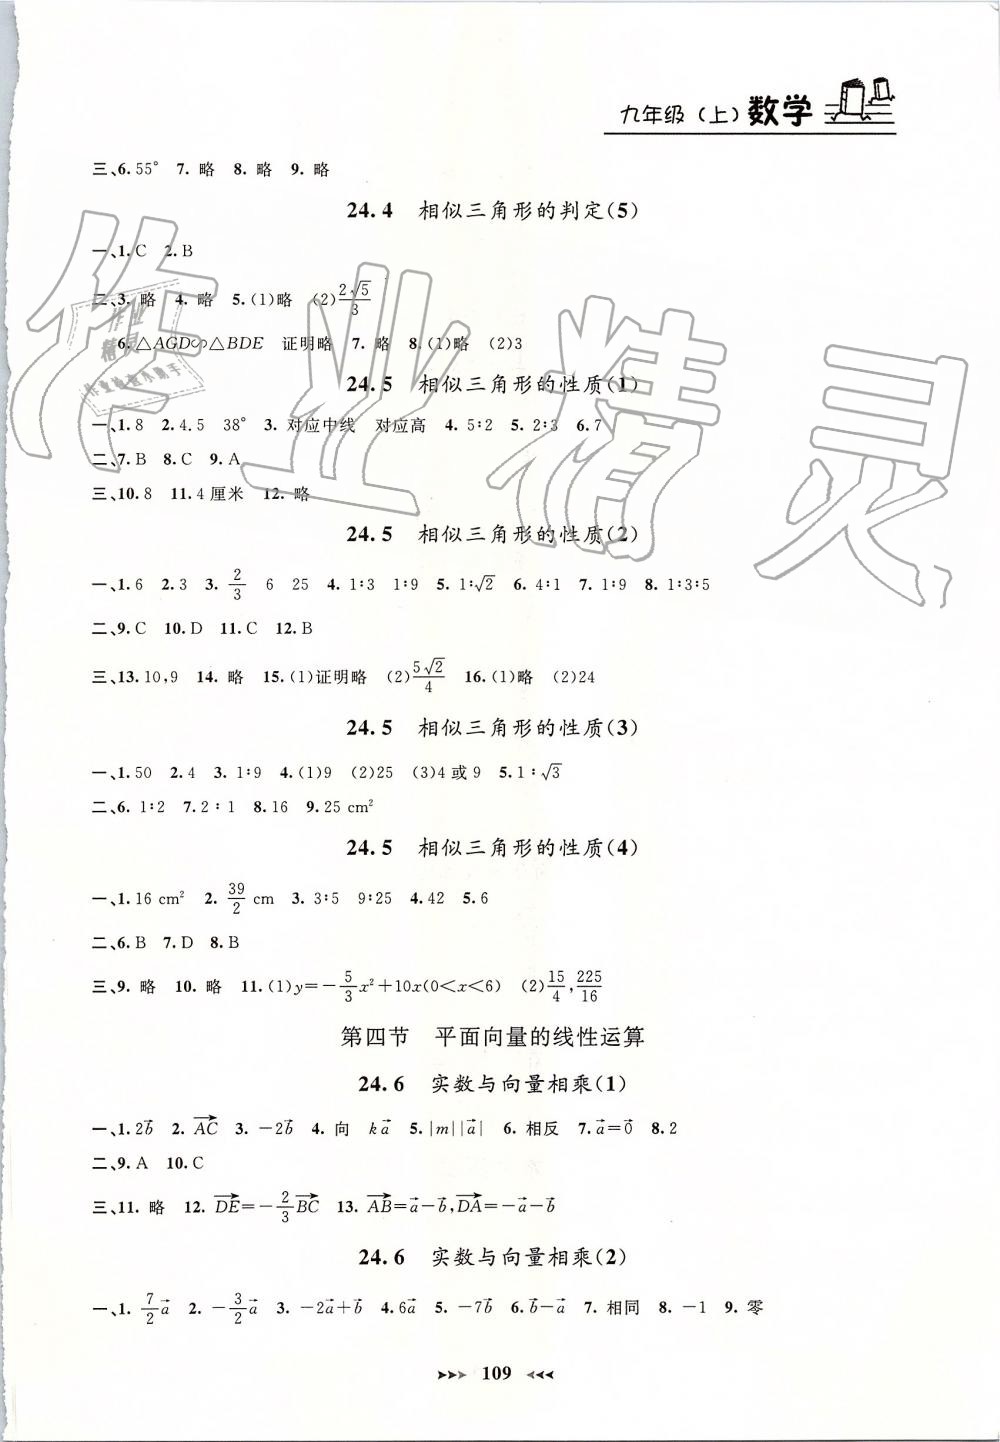 九年级（上）数学
三、6. 55° 7. 略 8. 略 9. 略
24.4 相似三角形的判定(5)
一、1. C 2. B
二、3. 略 4. 略 5. (1)略 (2) 2√5/3
6. △AGD∽△BDE 证明略 7. 略 8. (1)略 (2)3
24.5 相似三角形的性质(1)
一、1. 8 2. 4.5 38° 3. 对应中线 对应高 4. 5∶2 5. 2∶3 6. 7
二、7. B 8. C 9. A
三、10. 8 11. 4 厘米 12. 略
24.5 相似三角形的性质(2)
一、1. 6 2. 3 3. 2/3 6 25 4. 1∶3 1∶9 5. 1∶√2 6. 4∶1 7. 1∶9 8. 1∶3∶5
二、9. C 10. D 11. C 12. B
三、13. 10,9 14. 略 15. (1)证明略 (2) 5√2/4 16. (1)略 (2)24
24.5 相似三角形的性质(3)
一、1. 50 2. 4 3. 1∶9 4. (1)9 (2)25 (3)4 或 9 5. 1∶√3
二、6. 1∶2 7. 2∶1 8. 16 9. 25 cm²
24.5 相似三角形的性质(4)
一、1. 16 cm² 2. 39/2 cm 3. 3∶5 9∶25 4. 42 5. 6
二、6. B 7. D 8. B
三、9. 略 10. 略 11. (1)y=−5/3x²+10x(0<x<6) (2) 15/4, 225/16
第四节 平面向量的线性运算
24.6 实数与向量相乘(1)
一、1. 2b⃗ 2. AC⃗ 3. −2b⃗ 4. 向 ka⃗ 5. |m||a⃗| 6. 相反 7. a⃗=0⃗ 8. 2
二、9. A 10. C
三、11. 略 12. DE⃗=−2/3BC⃗ 13. AB⃗=a⃗−b⃗,DA⃗=−a⃗−b⃗
24.6 实数与向量相乘(2)
一、1. 7/2a⃗ 2. −3/2a⃗ 3. −2a⃗+b⃗ 4. 6a⃗ 5. −7b⃗ 6. b⃗−a⃗ 7. 相同 8. −1 9. 零
109
作业精灵
作业
精灵